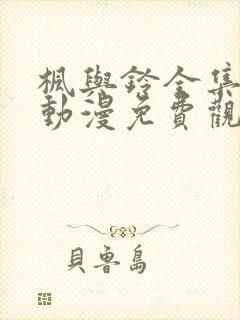 楓與鈴全集
動漫免費觀
貝魯島